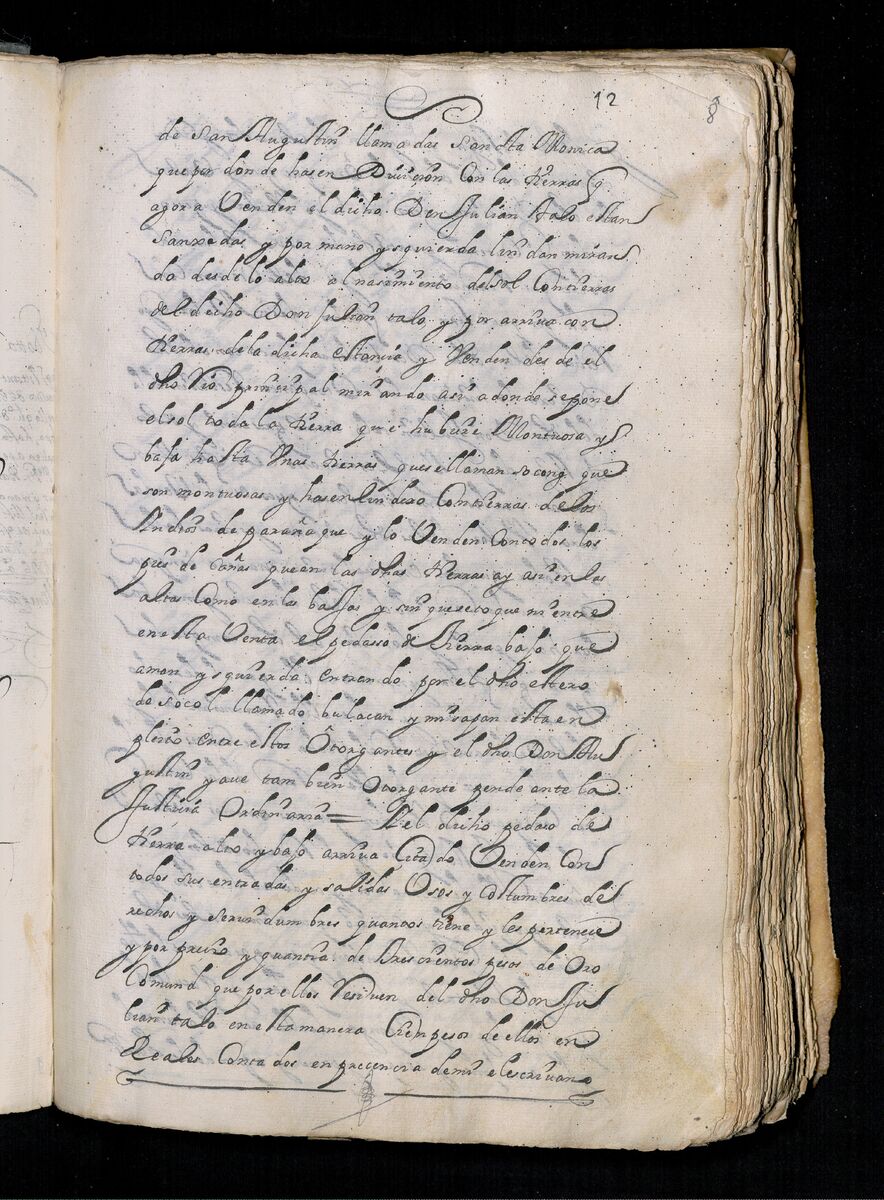 12
8
de San Augustin llamadas Sancta Monica
que por donde hasen Diviçion Con las tierras q̃
agora Venden el dicho Don Julian talo estan
Sanxedas y por mano ysquierda lindan miran
do desde lo alto al nasimiento del sol Con tierras
del dicho Don Julian talo y por arriva con
tierras de la dicha estançia y Venden desde el
dho Rio prinçipal mirando asi a donde se pone
el sol toda la tierra que hubiere Montuosa y
baja hasta Unas tierras que se llaman socong que
son montuosas y hasen lindero Con tierras de los
Indios de parañaque y lo Venden Con todos los
pies de Cañas que an las dhas tierras ay asi en las
altas Como en las bajas y sin que se toque ni entre
en esta Venta el pedasso de tierra bajo que
a man ysquierda entrando por el dho estero
de socol llamado bulacan y misapan esta en
pleito entre estos Otorgantes y el dho Don Au
gustin yaue tambien Otorgante pende ante la
Justicia Ordinaria = Y el dicho pedaso de
tierra alto y bajo arriva Çitado Venden Con
todos sus entradas y salidas Usos y Costumbres de
rechos y servidumbres quantos tiene y les pertenece
y por precio y quantia de trescientos pesos de Oro
Comun que por ellos Resiven del dho Don Ju
lian talo en esta manera Cien pesos de ellos en
Reales Contados en precencia de mi el escrivano